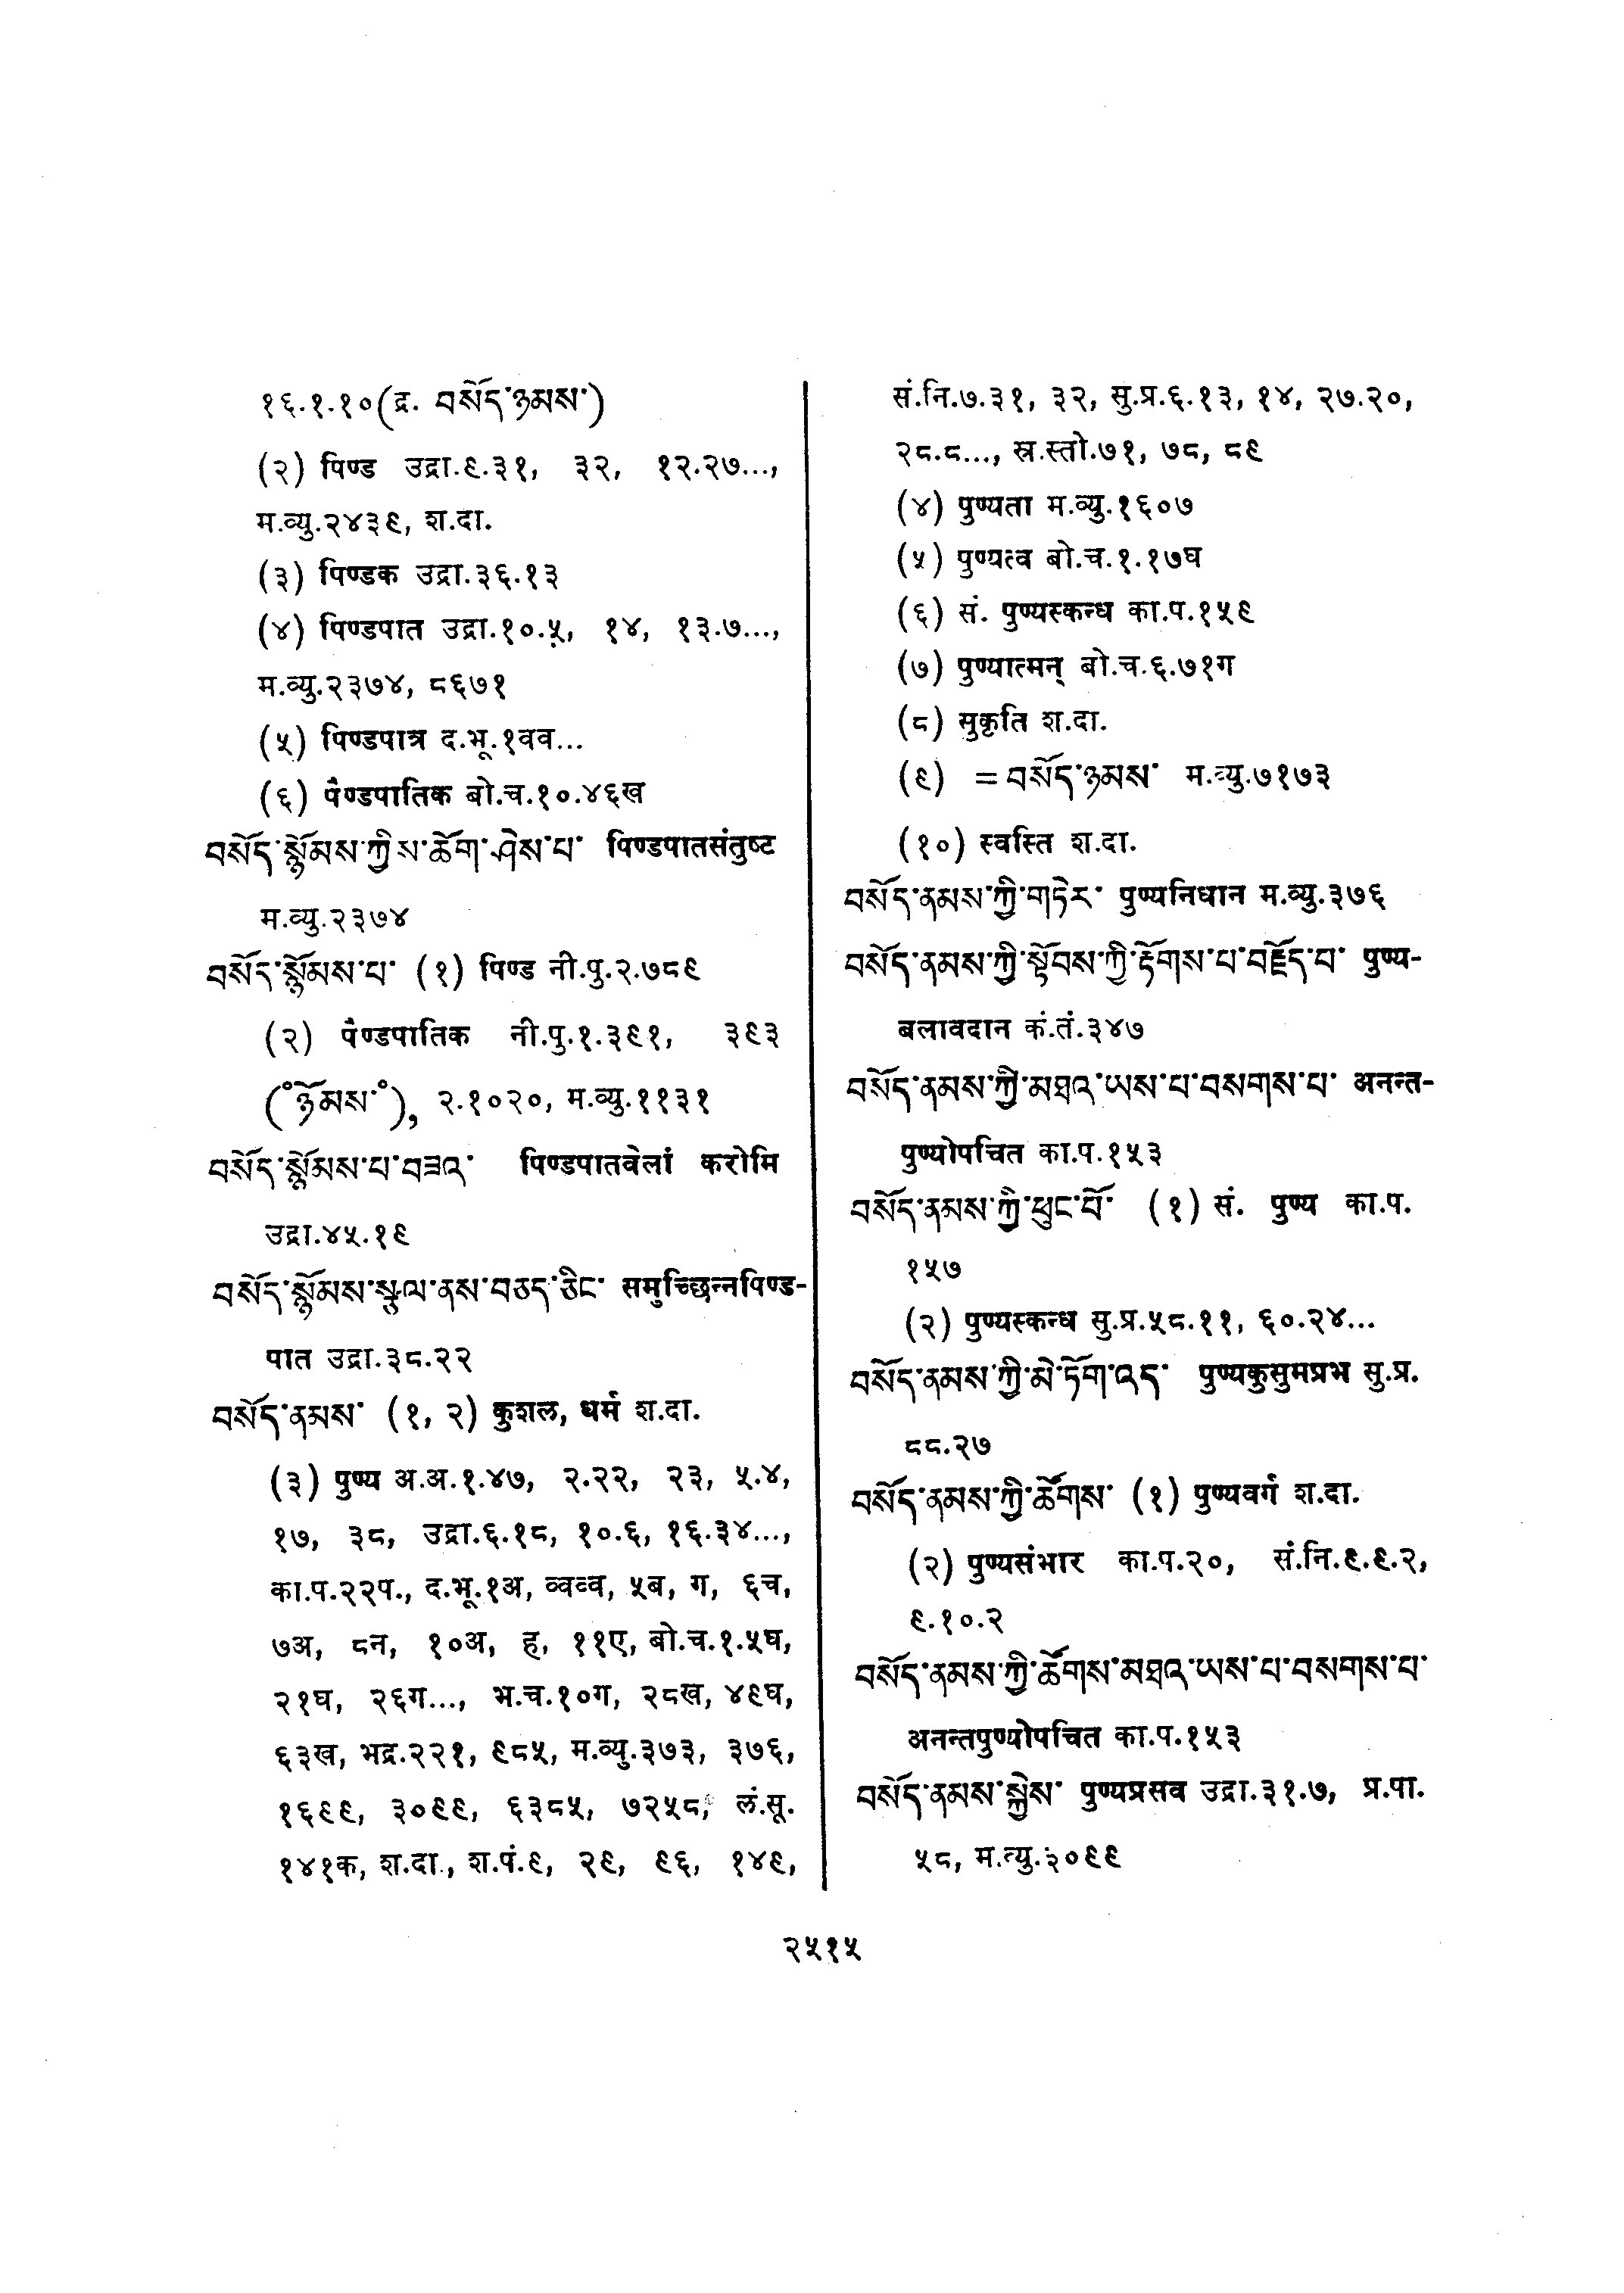 १६.१.१०(द्र. བསོད་ཉམས་)
(२) पिण्ड उद्रा.९.३१, ३२, १२.२७...,
म.व्यु.२४३९, श.दा.
(३) पिण्डक उद्रा.३६.१३
(४) पिण्डपात उद्रा.१०.५, १४, १३.७...,
म.व्यु.२३७४, ८६७१
(५) पिण्डपात्र द.भू.१वव...
(६) पैण्डपातिक बो.च.१०.४६ख
བསོད་སྙོམས་ཀྱིས་ཆོག་ཤེས་པ་ पिण्डपातसंतुष्ट
म.व्यु.२३७४
བསོད་སྙོམས་པ་ (१) पिण्ड नी.पु.२.७८९
(२) पैण्डपातिक नी.पु.१.३९१, ३९३
(°ཉོམས་°), २.१०२०, म.व्यु.११३१
བསོད་སྙོམས་པ་བཟའ་ पिण्डपातवेलां करोमि
उद्रा.४५.१९
བསོད་སྙོམས་སྩལ་ནས་བཅད་ཅིང་ समुच्छिन्नपिण्ड-
पात उद्रा.३८.२२
བསོད་ནམས་ (१, २) कुशल, धर्म श.दा.
(३) पुण्य अ.अ.१.४७, २.२२, २३, ५.४,
१७, ३८, उद्रा.६.१८, १०.६, १६.३४...,
का.प.२२प., द.भू.१अ, व्वव्व, ५ब, ग, ६च,
७अ, ८न, १०अ, ह, ११ए, बो.च.१.५घ,
२१घ, २६ग..., भ.च.१०ग, २८ख, ४९घ,
६३ख, भद्र.२२१, ९८५, म.व्यु.३७३, ३७६,
१६९९, ३०९९, ६३८५, ७२५८, लं.सू.
१४१क, श.दा., श.पं.९, २९, ९६, १४९,
सं.नि.७.३१, ३२, सु.प्र.६.१३, १४, २७.२०,
२८.८..., स्र.स्तो.७१, ७८, ८९
(४) पुण्यता म.व्यु.१६०७
(५) पुण्यत्व बो.च.१.१७घ
(६) सं. पुण्यस्कन्ध का.प.१५९
(७) पुण्यात्मन् बो.च.६.७१ग
(८) सुकृति श.दा.
(९) =བསོད་ཉམས་ म.व्यु.७१७३
(१०) स्वस्ति श.दा.
བསོད་ནམས་ཀྱི་གཏེར་ पुण्यनिधान म.व्यु.३७६
བསོད་ནམས་ཀྱི་སྟོབས་ཀྱི་རྟོགས་པ་བརྗོད་པ་ पुण्य-
बलावदान कं.तं.३४७
བསོད་ནམས་ཀྱི་མཐའ་ཡས་པ་བསགས་པ་ अनन्त-
पुण्योपचित का.प.१५३
བསོད་ནམས་ཀྱི་ཕུང་པོ་ (१) सं. पुण्य का.प.
१५७
(२) पुण्यस्कन्ध सु.प्र.५८.११, ६०.२४...
བསོད་ནམས་ཀྱི་མེ་ཏོག་འད་ पुण्यकुसुमप्रभ सु.प्र.
८८.२७
བསོད་ནམས་ཀྱི་ཚོགས་ (१) पुण्यवर्ग श.दा.
(२) पुण्यसंभार का.प.२०, सं.नि.९.९.२,
९.१०.२
བསོད་ནམས་ཀྱི་ཚོགས་མཐའ་ཡས་པ་བསགས་པ་
अनन्तपुण्योपचित का.प.१५३
བསོད་ནམས་སྐྱེས་ पुण्यप्रसव उद्रा.३१.७, प्र.पा.
५८, म.व्यु.३०९९
२५१५